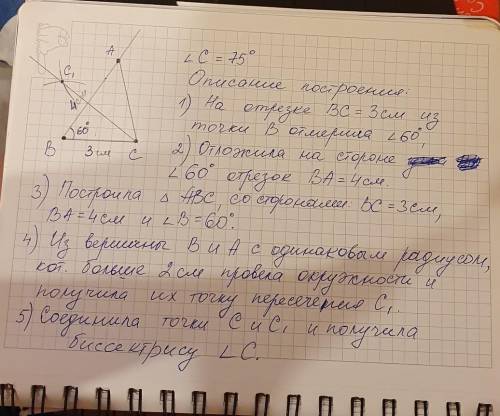 A
C₁
4см
60°
B
3см
C
∠C = 75°
Описание построения:
1) На отрезке BC = 3см из
точки B отмерила ∠60°,
2) Отложила на стороне
∠60° отрезок BA = 4см.
3) Построила △ ABC, со сторонами BC = 3см,
BA = 4см и ∠B = 60°.
4) Из вершины B и A с одинаковым радиусом,
кот. больше 2 см провела окружности и
получила их точку пересечения C₁.
5) Соединила точки C и C₁ и получила
биссектрису ∠C.